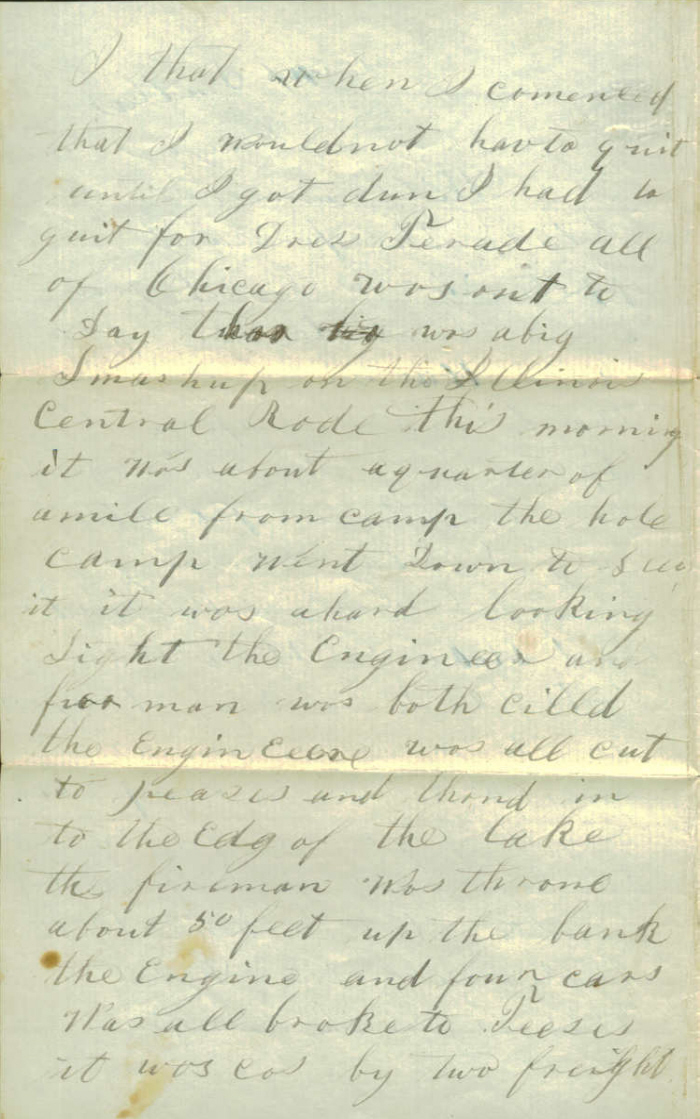 I that when I comenced
that I wouldnot havto quit
until I got dun I had to
quit for Dres Perade all
of Chicago was out to
Day thar was abig
Smashup on the Illinois
Central Rode this morning
it was about aquarter of
amile from camp the hole
camp went Down to See
it it was ahard looking
Sight the Engineer and
fireman was both cilld
the Engineere was all cut
to peases and thond in
to the Edg of the lake
the fireman was throne
about 50 feet up the bank
the Engine and four cars
Was all broke to Peeses
it was cos by two freight